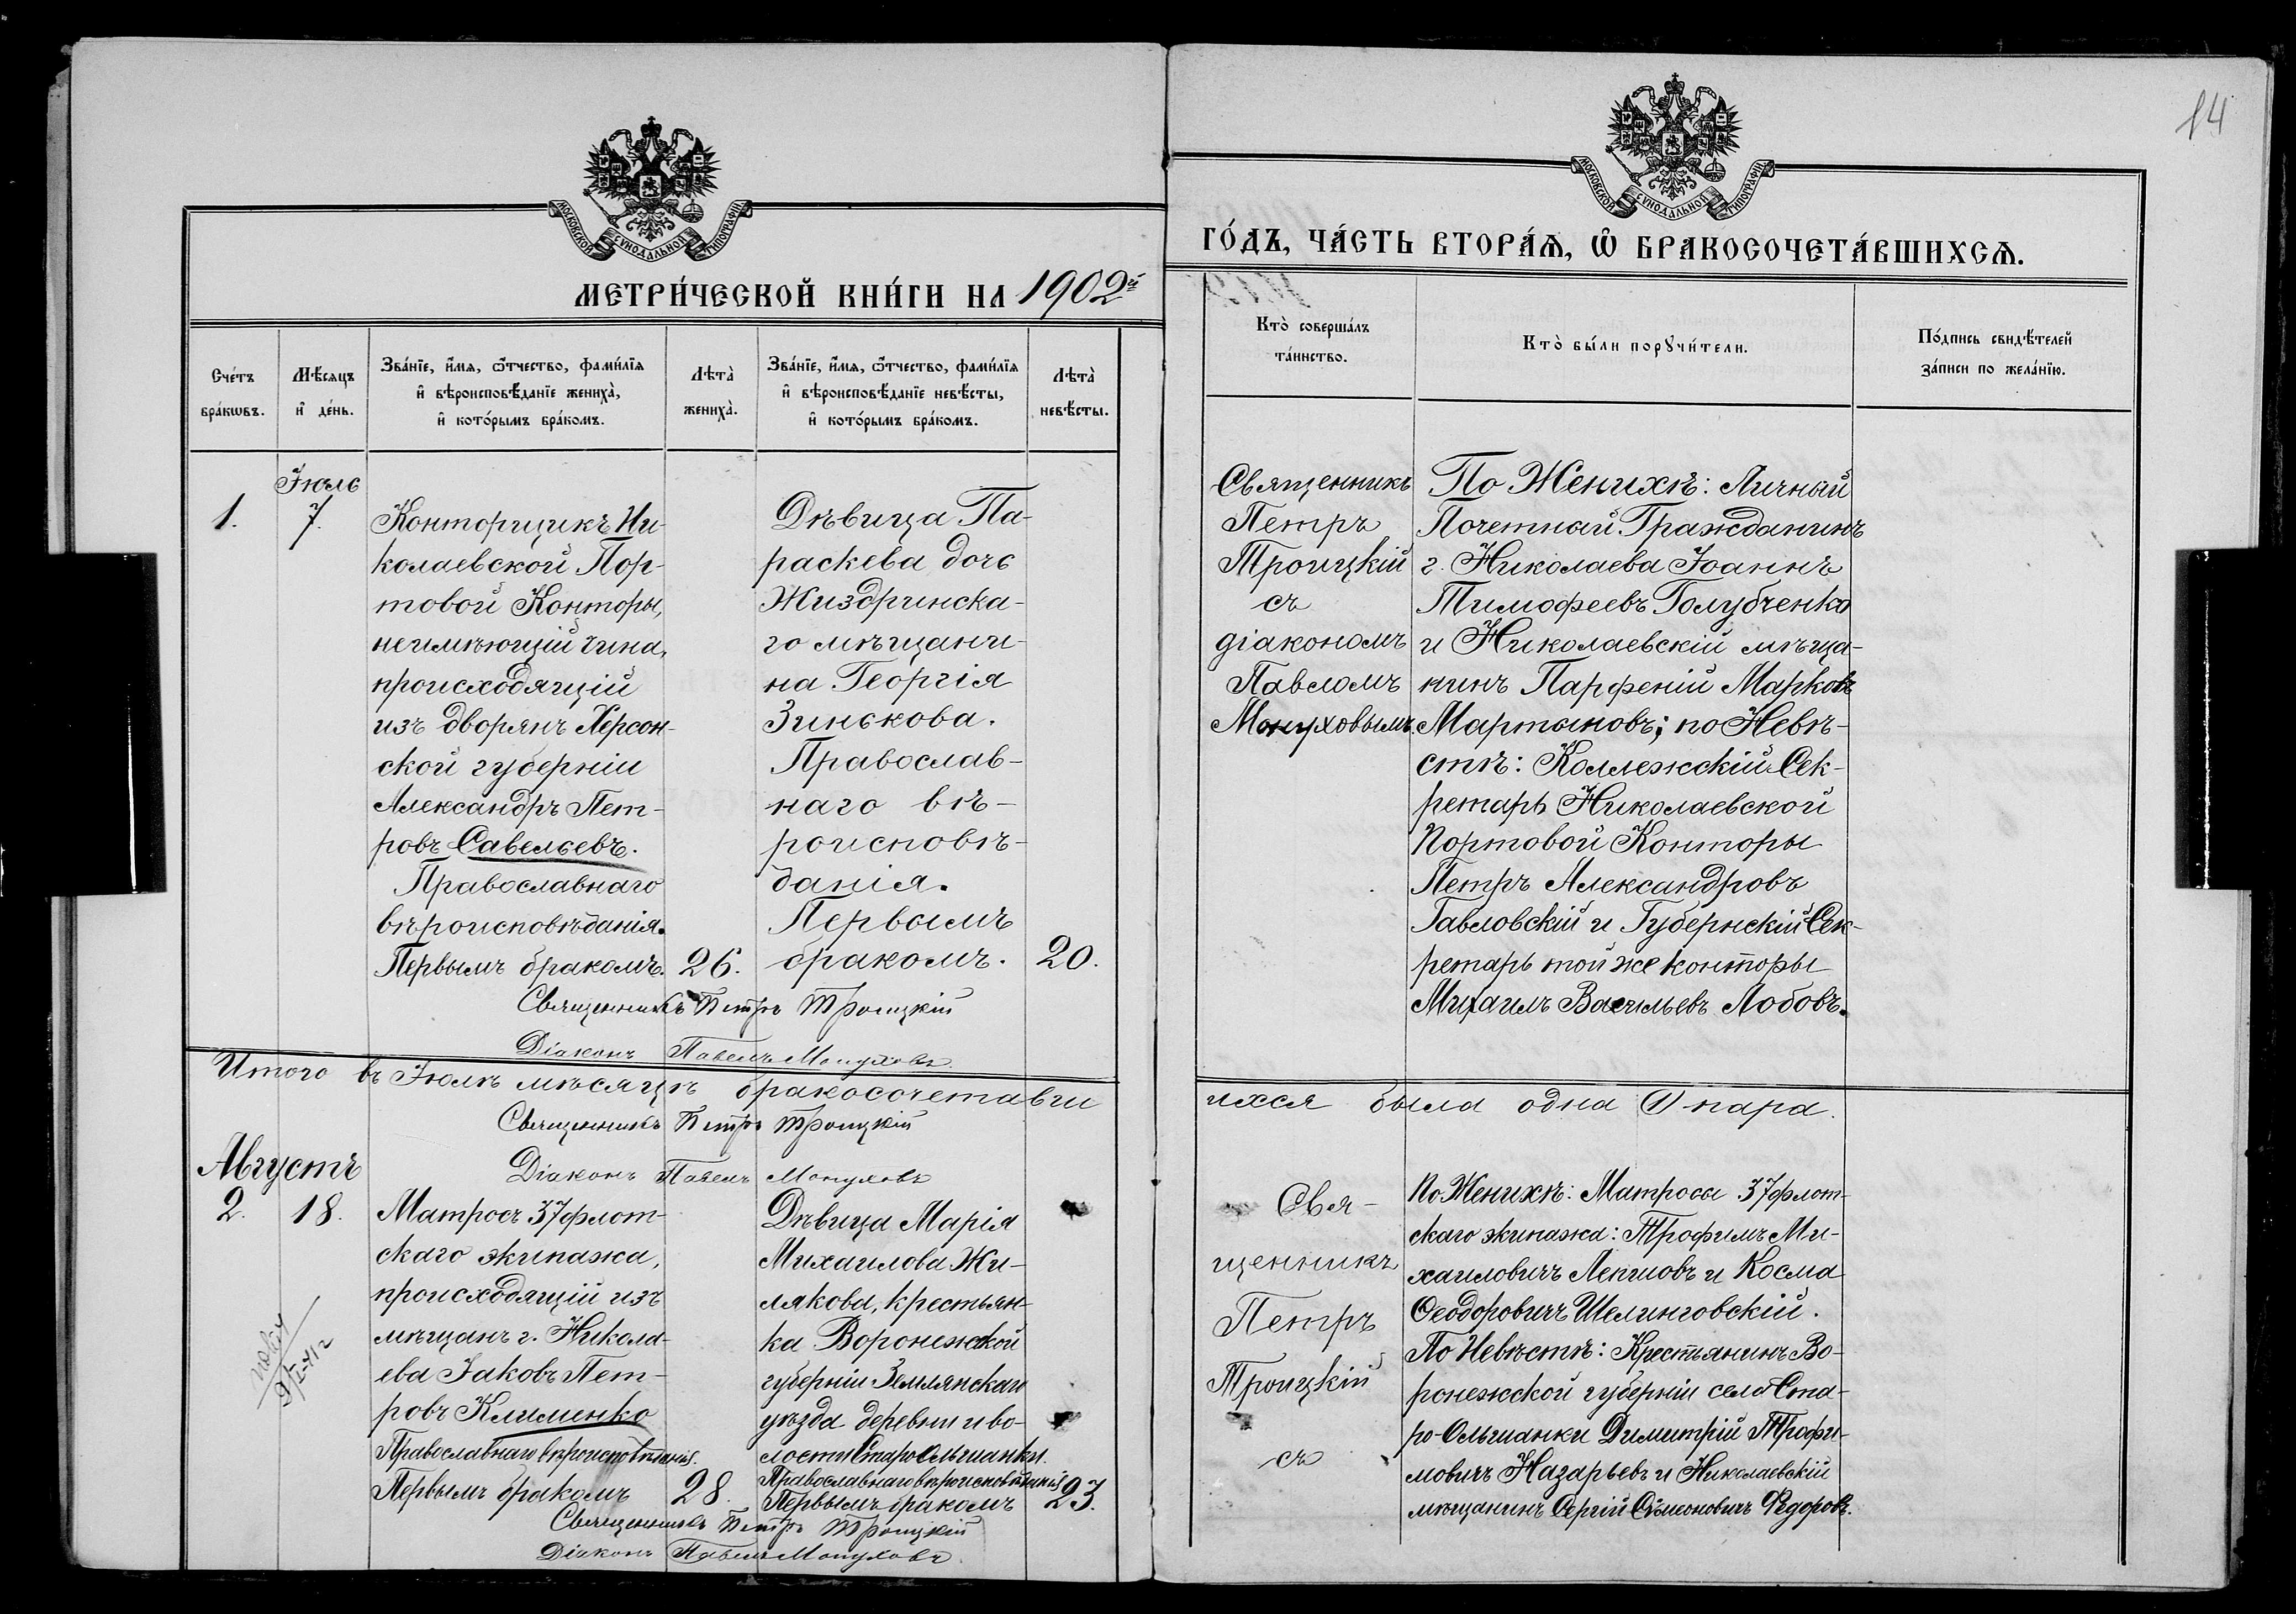 14
МОСКОВСКОЙ СѴНОДАЛЬНОЙ ТИПОГРАФІИ
МЕТРИ́ЧЕСКОЙ КНИ́ГИ НА 1902й
Сче́тъ бра́кѡвъ.
Мѣ́сяцъ и҆ де́нь.
Зва́нїе, и҆́мѧ, ѻ҆́тчество, фами́лїѧ
и҆ вѣроисповѣ́данїе жениха̀,
и҆ кото́рымъ бра́комъ.
Лѣта̀ жениха̀.
Зва́нїе, и҆́мѧ, ѻ҆́тчество, фами́лїѧ
и҆ вѣроисповѣ́данїе невѣ́сты,
и҆ кото́рымъ бра́комъ.
Лѣта̀ невѣ́сты.
Іюль
1.
7.
Конторщикъ Ни-
колаевской Пор-
товой Конторы,
неимѣющій чина,
происходящій
изъ дворянъ Херсон-
ской губерніи
Александръ Пет-
ровъ Савельевъ.
Православнаго
вѣроисповѣданія.
Первымъ бракомъ.
26.
Дѣвица Па-
раскева дочь
Жиздринска-
го мѣщани-
на Георгія
Зинькова.
Православ-
наго вѣ-
роисповѣ-
данія.
Первымъ
бракомъ.
20.
Священникъ Петръ Троицкій
Діаконъ Павелъ
Итого въ Іюлѣ мѣсяцѣ бракосочетавши
Священникъ Петръ Троицкій
Августъ
Діаконъ Павелъ
2.
18.
Матросъ 37 флот-
скаго экипажа,
происходящій изъ
мѣщанъ г. Никола-
ева Іаковъ Пет-
ровъ Клименко
Православнаго вѣроисповѣданія.
Первымъ бракомъ
28.
Дѣвица Марія
Михаилова Жи-
лякова, крестьян-
ка Воронежской
губерніи Землянскаго
уѣзда деревни и во-
лости Старо Ольшанки.
Православнаго вѣроисповѣданія
Первымъ бракомъ
23.
Священникъ Петръ Троицкій
Діаконъ Павелъ
МОСКОВСКОЙ СѴНОДАЛЬНОЙ ТИПОГРАФІИ
ГО́ДЪ, ЧА́СТЬ ВТОРА́Ѧ, Ѡ҆ БРАКОСОЧЕТА́ВШИХСѦ.
Кто̀ соверша́лъ
та́инство.
Кто̀ бы́ли порꙋчи́тели.
По́дпись свидѣ́телей
за́писи по жела́нїю.
Священникъ
Петръ
Троицкій
съ
діакономъ
Павломъ
По Женихѣ: Личный
Почетный Гражданинъ
г. Николаева Іоаннъ
Тимофеевъ Голубченко
и Николаевскій мѣща-
нинъ Парфеній Марковъ
Мартыновъ; по Невѣ-
стѣ: Коллежскій Сек-
ретарь Николаевской
Портовой Конторы
Петръ Александровъ
Гавловскій и Губернскій Сек-
ретарь той же конторы
Михаилъ Васильевъ Лобовъ.
ихся была одна (1) пара.
Свя-
щенникъ
Петръ
Троицкій
съ
По Женихѣ: Матросы 37 флот-
скаго экипажа: Трофимъ Ми-
хаиловичъ и Косма
Ѳеодоровичъ Шелинговскій.
По Невѣстѣ: Крестьянинъ Во-
ронежской губерніи села Ста-
ро-Ольшанки Димитрій Трофи-
мовичъ Назарьевъ и Николаевскій
мѣщанинъ Сергій Сѵмеоновичъ Ѳедоровъ.